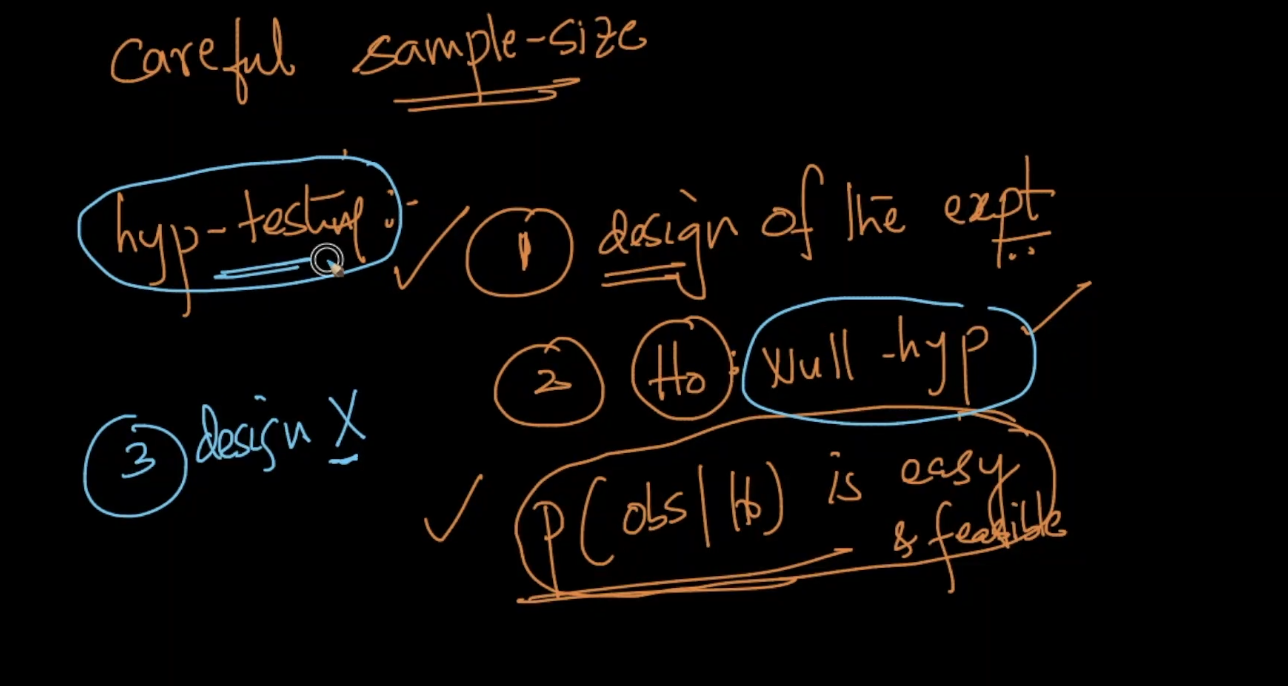 Careful sample-size
hyp-testing :-
1 design of the expt
2 Ho: Null-hyp
3 design X
P(obs|Ho) is easy
& feasible